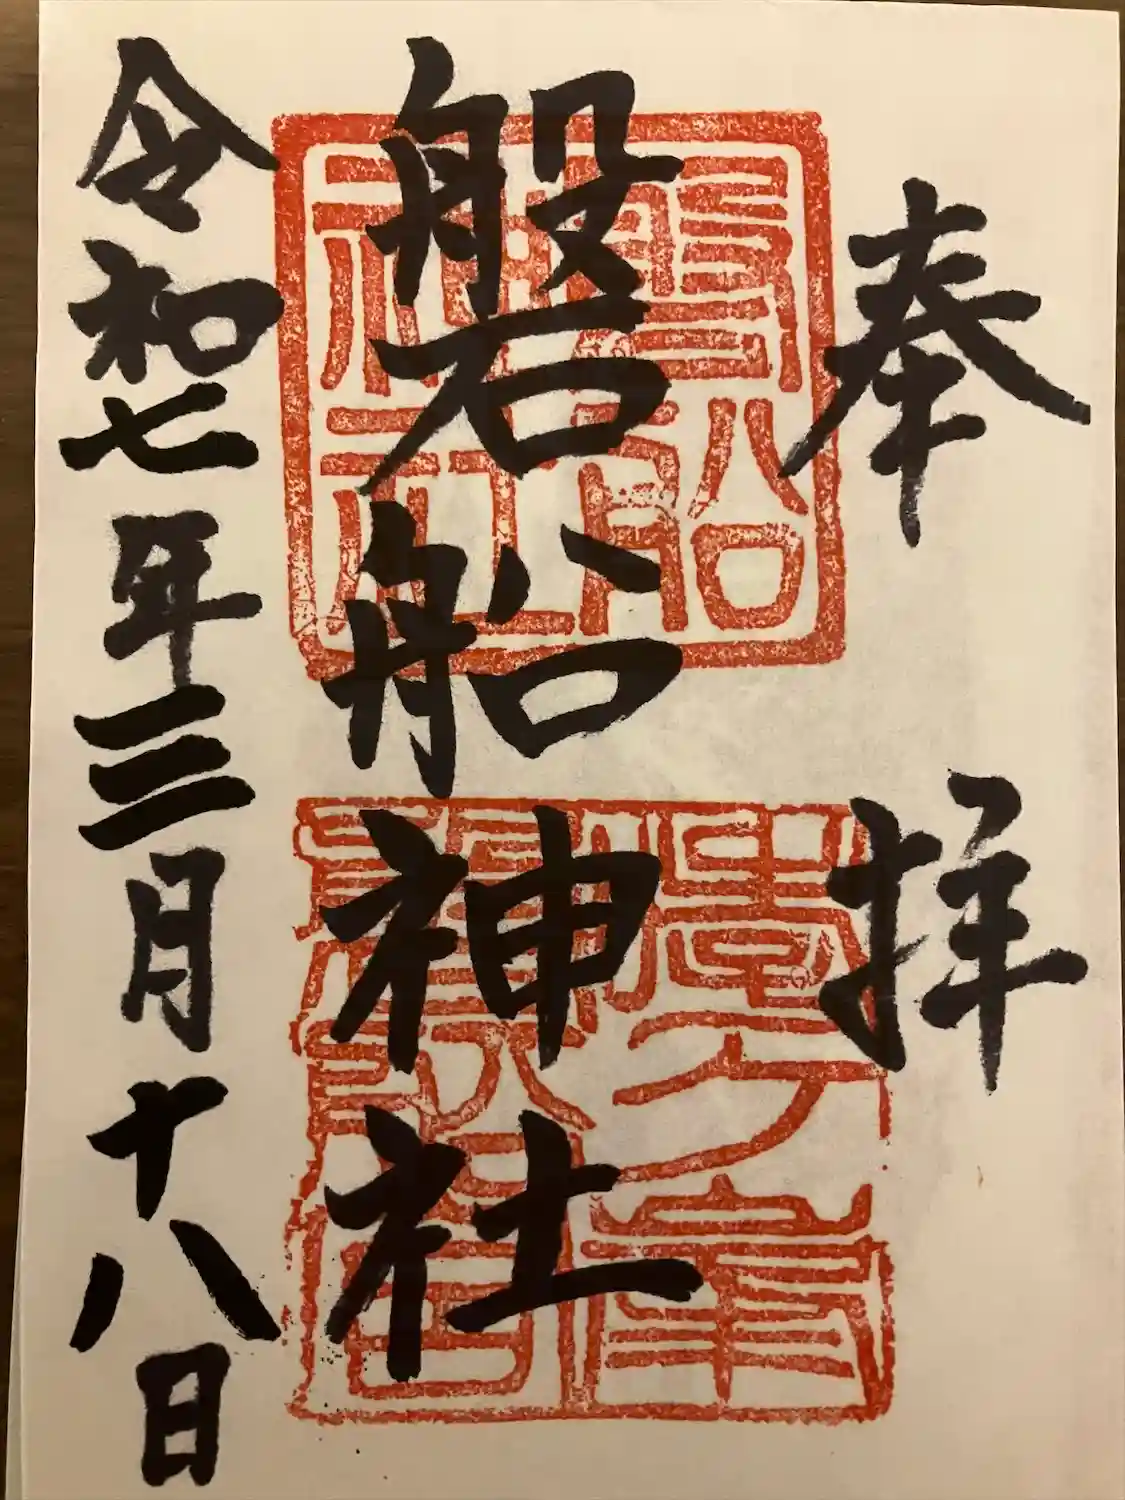 奉拝
磐船神社
令和七年三月十八日
磐船神社